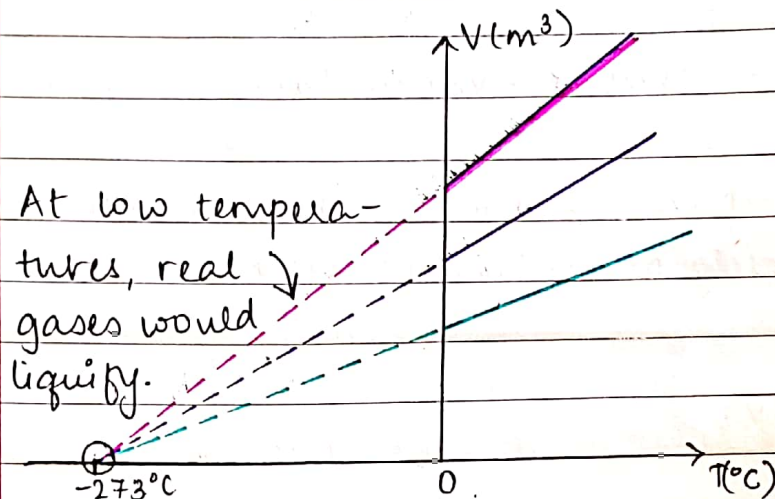 V(m³)
At low tempera-
tures, real
gases would
liquify.
-273°C
0
T(°C)